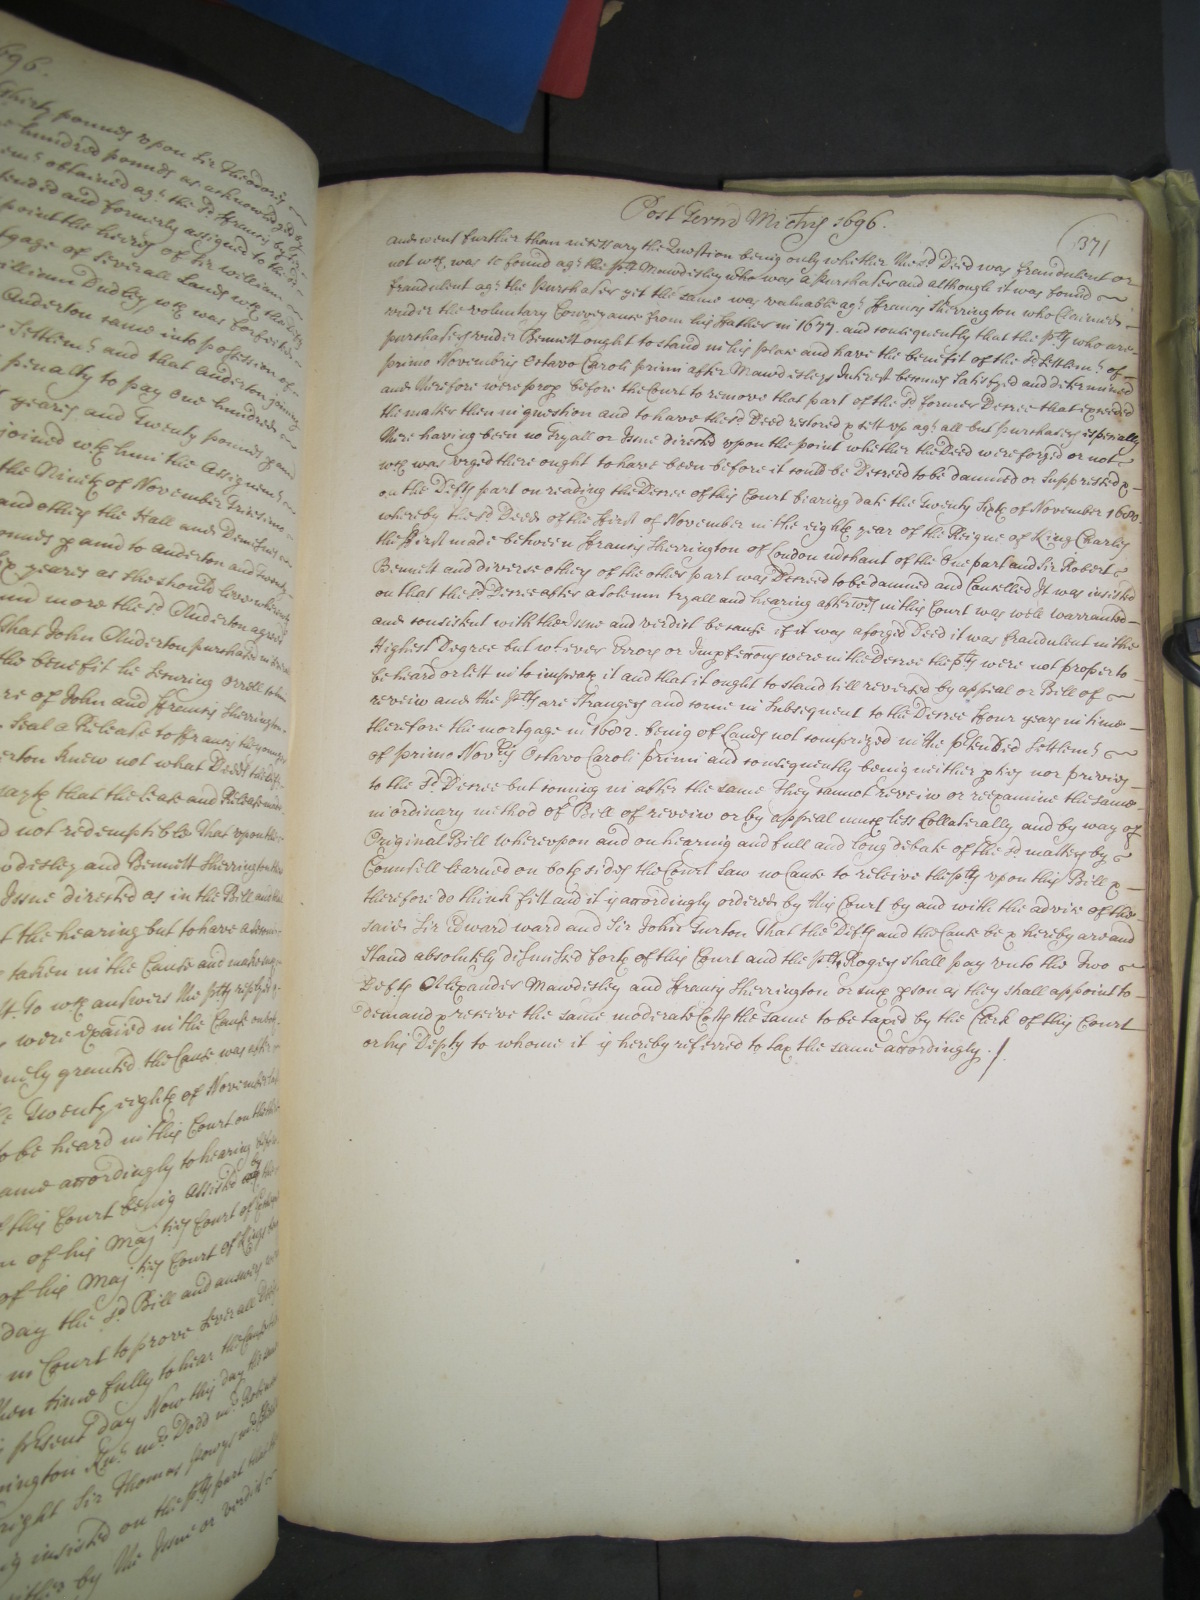 696.
Thirty pounds upon Sir Theodore
hundred pounds as acknowledged
obtained agt. the sd. Francis by
and formerly assigned to the
point the heires of Sir William
gage of severall Lands wch.
William Dudley wch was forfeited
Anderton came into possession of
Settlemt. and that Anderton joining
penalty to pay one hundred
yeares and Twenty pounds p annu
joined wth him the Assignemt.
the Nineth of November
and others the Hall and Demesnes
pounds p annu to Anderton and Twenty
yeares as she should live
more the sd Anderton agreed
That John Anderton purchased
the benefit he securing Orrell to him
re of John and Francis Sherrington
Seal a Release to Francis the younger
erton knew not what Deeds
that the lease and Release
d not redemptible That upon the
wdesley and Bennett Sherrington
Issue directed as in the Bill and
t the hearing but to have
taken in the Cause and make
To wch answers the pltfs replyed
were exaied in the Cause
granted the Cause was
Twenty eighth of November
to be heard in this Court on the
came accordingly to hearing before
this Court being assisted by
of his Majties Court of
of his Majties Court of Kings
day the sd Bill and answers
in Court to prove severall
then time fully to hear the
present day Now this day the
ington Knt. mr. Dodd mr.
right Sir Thomas Powys
insisted on the pltfs part that
by the Issue or verdict
Post Termd Michis 1696.
371
and went further than nessessary the Question being only whether the sd Deed was fraudulent or
not wch was so found agt. the pltf Mawdesley who was a purchaser and although it was found
fraudulent agt. the purchaser yet the same was valuable agt. Francis Sherrington who Claimed
under the voluntary Conveyance from his ffather in 1677. and consequently that the pltfs who are
purchasers under Bennett ought to stand in his place and have the benefit of the sd Settlemt. of
primo Novembris Octavo Caroli primi after Mawdesleys Interest became satisfyed and determined
and therefore were prop before the Court to remove that part of the sd former Decree that exceeded
the matter then in question and to have the sd Deed restored & sett vp agt. all but purchasers especially
there having been no Tryall or Issue directed vpon the point whether the Deed were forged or not
wch was vrged there ought to have been before it could be Decreed to be damned or suppressed &
on the Defts part on reading the Decree of this Court bearing date the Twenty Sixth of November 1680
whereby the sd Deed of the ffirst of November in the eighth year of the Reigne of King Charles
the ffirst made between ffrancis Sherrington of London mrchant of the one part and Sir Robert
Bennett and diverse others of the other part was Decreed to be damned and Cancelled It was insisted
on that the sd Decree after a solemn tryall and hearing afterwds in this Court was well warranted
and consistent with the Issue and verdict because if it was a forged Deed it was fraudulent in the
Highest Degree but wt. ever Errors or Impfeccons were in the Decree the pltfs were not proper to
be heard or lett in to impeach it and that it ought to stand till reversed by appeal or Bill of
reveiw and the pltfs are strangers and come in subsequent to the Decree ffour years in time
therefore the mortgage in 1682. being of Lands not comprized in the ptended Settlemt.
of primo Novris Octavo Caroli primi and consequently being neither ptyes nor privies
to the sd Decree but coming in after the same They cannot reveiw or reexamine the same
in ordinary method of Bill of reveiw or by appeal much less Collaterally and by way of
Original Bill wherevpon and on hearing and full and long debate of the sd matters by
Councill learned on both sides the Court saw no Cause to releive the pltfs vpon this Bill &
therefore do think fitt and it is accordingly ordered by this Court by and with the advice of the
said Sir Edward Ward and Sir John Turton That the Defts and the Cause be & hereby are and
stand absolutely dismissed forth of this Court and the pltf Roger shall pay vnto the Two
Defts Alexander Mawdesley and ffrancis Sherrington or such pson as they shall appoint to
demand & receive the same moderate Costs the same to be taxed by the Clerk of this Court
or his Depty to whome it is hereby referred to tax the same accordingly./